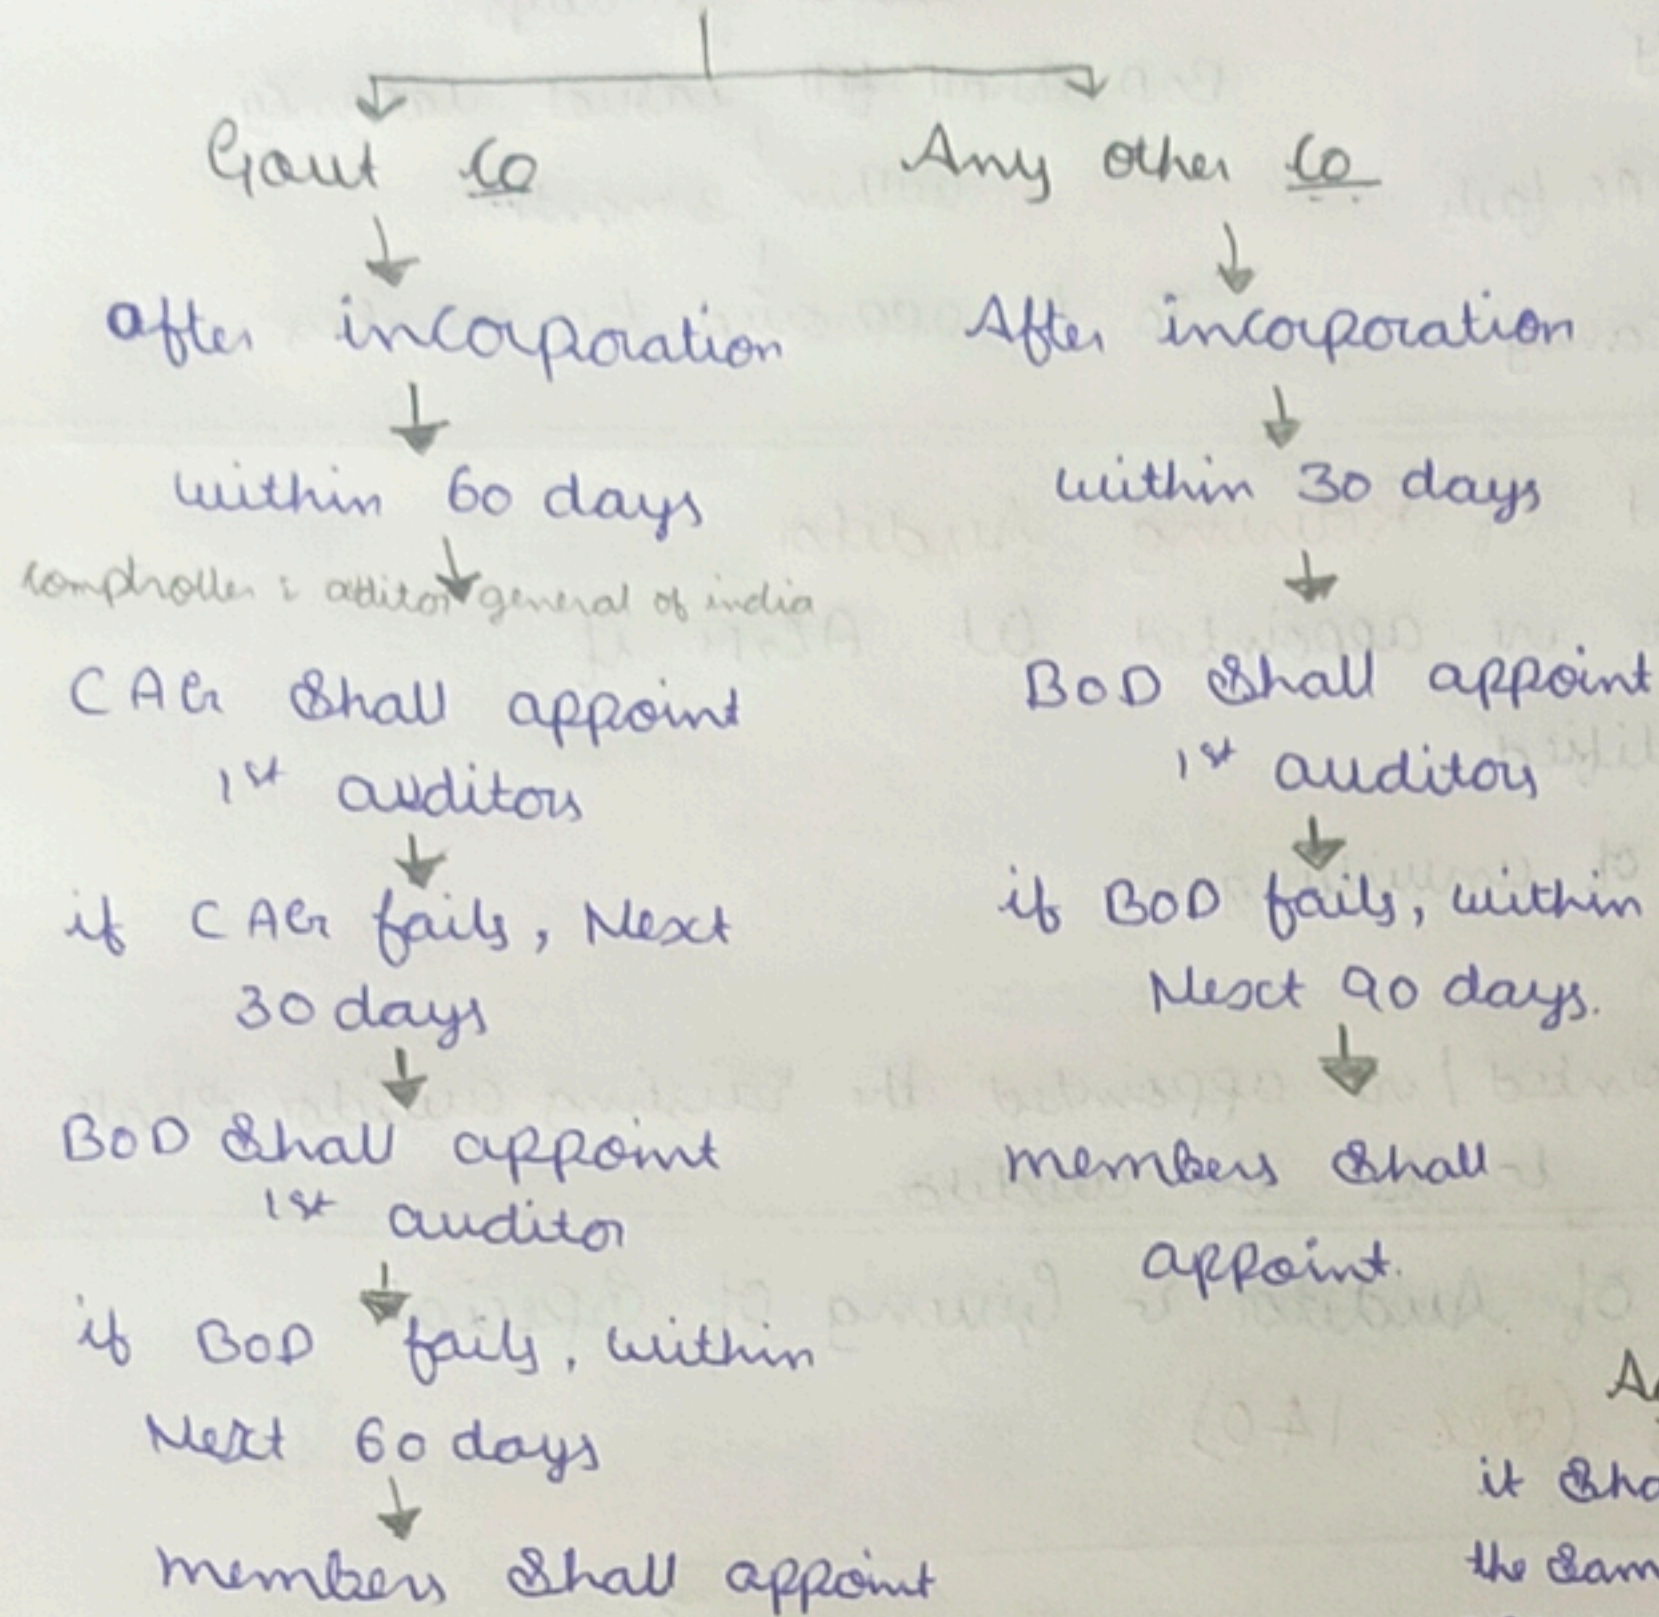 Govt Co
after incorporation
within 60 days
comptroller & auditor general of india
CAG shall appoint
1st auditors
if CAG fails, Next
30 days
BOD shall appoint
1st auditor
if BOD fails, within
Next 60 days
members shall appoint
Any other Co
After incorporation
within 30 days
BOD shall appoint
1st auditors
if BOD fails, within
Next 90 days.
members shall
appoint.
it
the